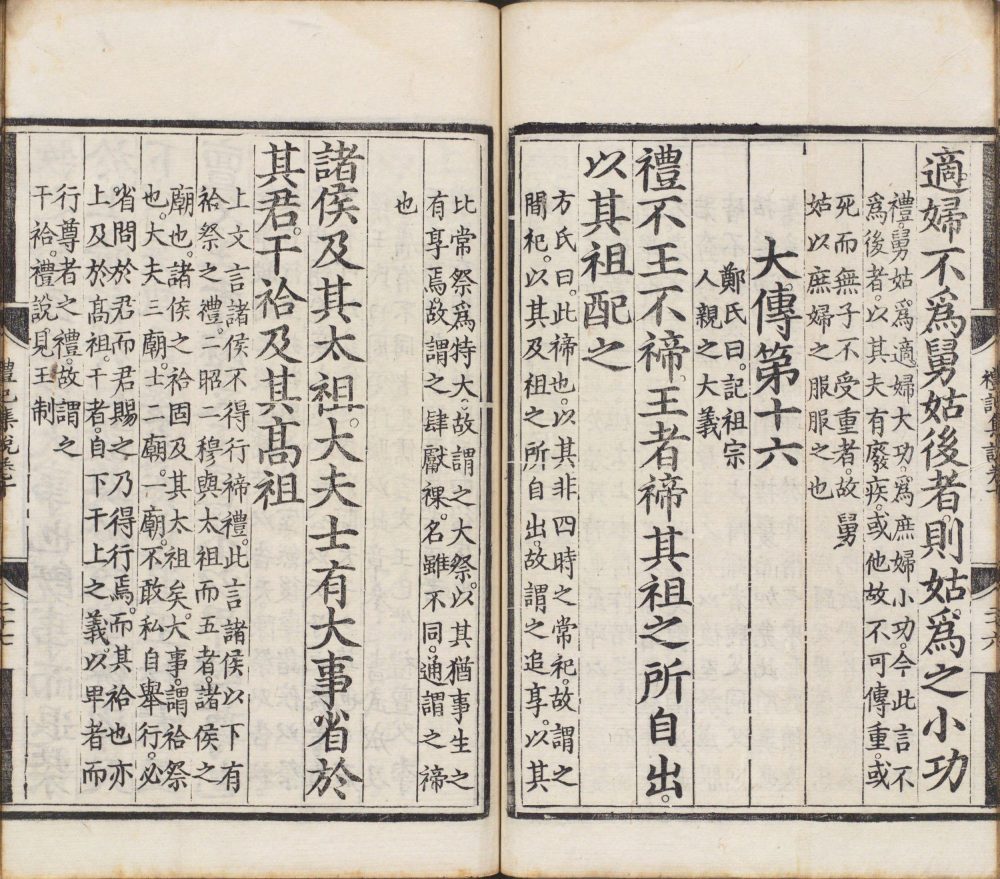 適婦不爲舅姑後者則姑爲之小功
禮。舅姑。爲適婦大功。爲庶婦小功。今此言不
爲後者。以其夫有廢疾。或他故不可傳重。或
死而無子不受重者。故舅
姑以庶婦之服服之也
大傳第十六
鄭氏曰。記祖宗
人親之大義
禮不王不禘。王者禘其祖之所自出。
以其祖配之
方氏曰。此禘也。以其非四時之常祀。故謂之
間祀。以其及祖之所自出。故謂之追享。以其
禮記集說卷
二十六
比常祭爲特大。故謂之大祭。以其猶事生之
有享焉。故謂之肆獻祼。名雖不同。通謂之禘
也
諸侯及其太祖。大夫士有大事省於
其君。干祫及其高祖
上文言諸侯不得行禘禮。此言諸侯以下有
祫祭之禮。二昭二穆與太祖而五者。諸侯之
廟也。諸侯之祫固及其太祖矣。大事。謂祫祭
也。大夫三廟。士二廟一廟。不敢私自舉行。必
省問於君而君賜之。乃得行焉。而其祫也。亦
上及於高祖。干者。自下干上之義。以卑者而
行尊者之禮。故謂之
干祫。禮說見王制
禮記集說卷
二十七